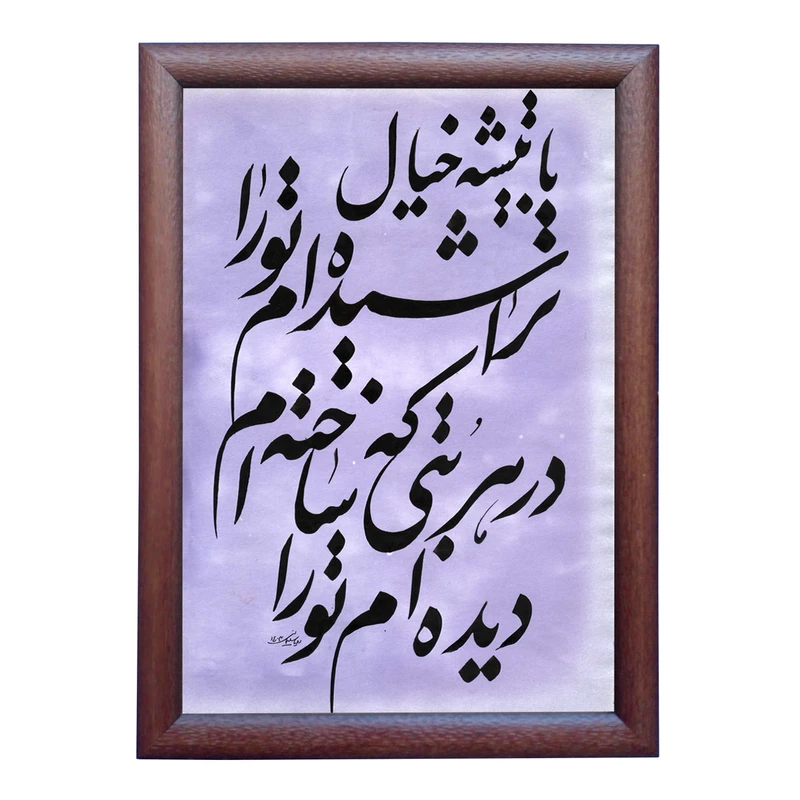 با تیشه خیال
تراشیده ام تو را
در هر بُتی که ساخته ام
دیده ام تو را